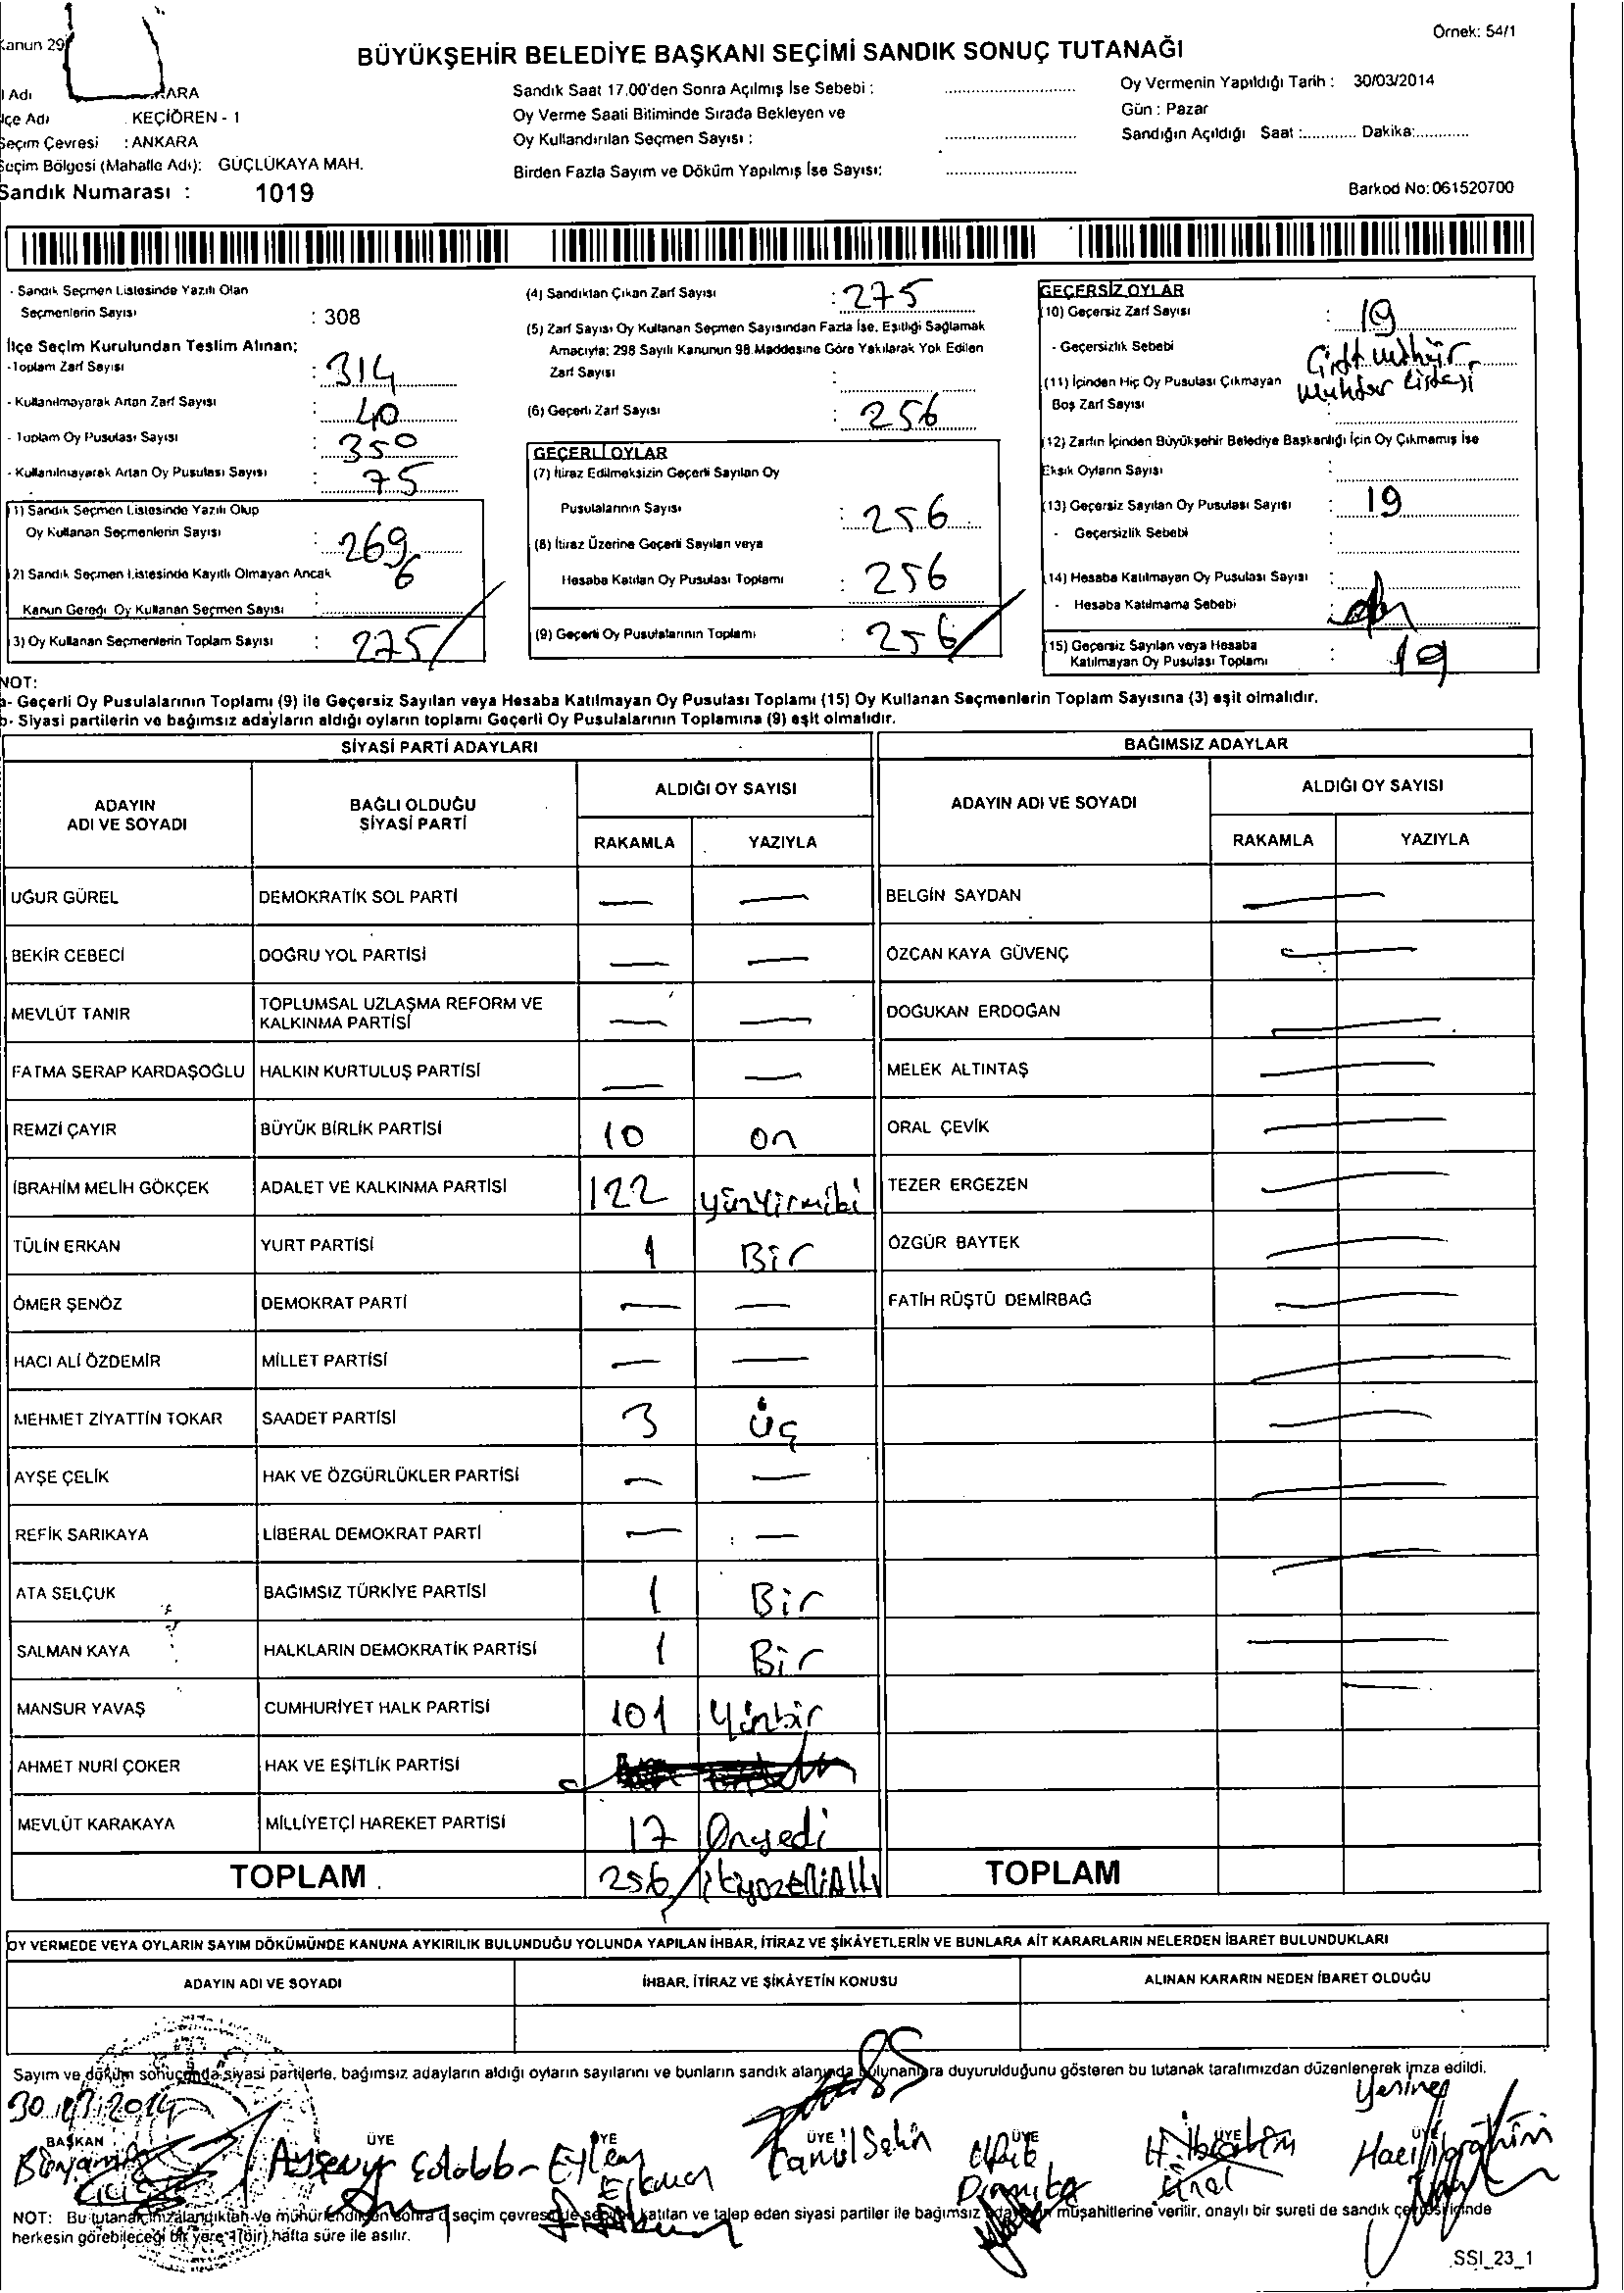 Kanun 29
Örnek: 54/1
BÜYÜKŞEHİR BELEDİYE BAŞKANI SEÇİMİ SANDIK SONUÇ TUTANAĞI
Adı ARA
İlçe Adı KEÇİÖREN - 1
Seçim Çevresi : ANKARA
Seçim Bölgesi (Mahalle Adı): GÜÇLÜKAYA MAH.
Sandık Numarası : 1019
Sandık Saat 17.00'den Sonra Açılmış İse Sebebi :
Oy Verme Saati Bitiminde Sırada Bekleyen ve
Oy Kullandırılan Seçmen Sayısı :
Birden Fazla Sayım ve Döküm Yapılmış İse Sayısı:
Oy Vermenin Yapıldığı Tarih : 30/03/2014
Gün : Pazar
Sandığın Açıldığı Saat :............ Dakika:............
Barkod No: 061520700
- Sandık Seçmen Listesinde Yazılı Olan
Seçmenlerin Sayısı : 308
İlçe Seçim Kurulundan Teslim Alınan;
-Toplam Zarf Sayısı : 314
- Kullanılmayarak Artan Zarf Sayısı : 40
- Toplam Oy Pusulası Sayısı : 350
- Kullanılmayarak Artan Oy Pusulası Sayısı : 75
(1) Sandık Seçmen Listesinde Yazılı Olup
Oy Kullanan Seçmenlerin Sayısı : 269
(2) Sandık Seçmen Listesinde Kayıtlı Olmayan Ancak
Kanun Gereği Oy Kullanan Seçmen Sayısı : 6
(3) Oy Kullanan Seçmenlerin Toplam Sayısı : 275
(4) Sandıktan Çıkan Zarf Sayısı : 275
(5) Zarf Sayısı Oy Kullanan Seçmen Sayısından Fazla İse, Eşitliği Sağlamak
Amacıyla; 298 Sayılı Kanunun 98.Maddesine Göre Yakılarak Yok Edilen
Zarf Sayısı :
(6) Geçerli Zarf Sayısı : 256
GEÇERLİ OYLAR
(7) İtiraz Edilmeksizin Geçerli Sayılan Oy
Pusulalarının Sayısı : 256
(8) İtiraz Üzerine Geçerli Sayılan veya
Hesaba Katılan Oy Pusulası Toplamı : 256
(9) Geçerli Oy Pusulalarının Toplamı : 256
GEÇERSİZ OYLAR
(10) Geçersiz Zarf Sayısı : 19
- Geçersizlik Sebebi : Çift mühür
(11) İçinden Hiç Oy Pusulası Çıkmayan muhtar Listesi
Boş Zarf Sayısı :
(12) Zarfın İçinden Büyükşehir Belediye Başkanlığı İçin Oy Çıkmamış İse
Eksik Oyların Sayısı :
(13) Geçersiz Sayılan Oy Pusulası Sayısı : 19
- Geçersizlik Sebebi :
(14) Hesaba Katılmayan Oy Pusulası Sayısı :
- Hesaba Katılmama Sebebi :
(15) Geçersiz Sayılan veya Hesaba
Katılmayan Oy Pusulası Toplamı : 19
NOT:
a- Geçerli Oy Pusulalarının Toplamı (9) ile Geçersiz Sayılan veya Hesaba Katılmayan Oy Pusulası Toplamı (15) Oy Kullanan Seçmenlerin Toplam Sayısına (3) eşit olmalıdır.
b- Siyasi partilerin ve bağımsız adayların aldığı oyların toplamı Geçerli Oy Pusulalarının Toplamına (9) eşit olmalıdır.
SİYASİ PARTİ ADAYLARI BAĞIMSIZ ADAYLAR
ADAYIN ADI VE SOYADI BAĞLI OLDUĞU SİYASİ PARTİ ALDIĞI OY SAYISI RAKAMLA YAZIYLA
ADAYIN ADI VE SOYADI ALDIĞI OY SAYISI RAKAMLA YAZIYLA
UĞUR GÜREL DEMOKRATİK SOL PARTİ — — BELGİN SAYDAN —
BEKİR CEBECİ DOĞRU YOL PARTİSİ — — ÖZCAN KAYA GÜVENÇ —
MEVLÜT TANIR TOPLUMSAL UZLAŞMA REFORM VE KALKINMA PARTİSİ — — DOĞUKAN ERDOĞAN —
FATMA SERAP KARDAŞOĞLU HALKIN KURTULUŞ PARTİSİ — — MELEK ALTINTAŞ —
REMZİ ÇAYIR BÜYÜK BİRLİK PARTİSİ 10 on ORAL ÇEVİK —
İBRAHİM MELİH GÖKÇEK ADALET VE KALKINMA PARTİSİ 122 yüzYirmibi TEZER ERGEZEN —
TÜLİN ERKAN YURT PARTİSİ 1 Bir ÖZGÜR BAYTEK —
ÖMER ŞENÖZ DEMOKRAT PARTİ — — FATİH RÜŞTÜ DEMİRBAĞ —
HACI ALİ ÖZDEMİR MİLLET PARTİSİ — — —
MEHMET ZİYATTİN TOKAR SAADET PARTİSİ 3 üç —
AYŞE ÇELİK HAK VE ÖZGÜRLÜKLER PARTİSİ — — —
REFİK SARIKAYA LİBERAL DEMOKRAT PARTİ — — —
ATA SELÇUK BAĞIMSIZ TÜRKİYE PARTİSİ 1 Bir
SALMAN KAYA HALKLARIN DEMOKRATİK PARTİSİ 1 Bir —
MANSUR YAVAŞ CUMHURİYET HALK PARTİSİ 101 Yüzbir —
AHMET NURİ ÇOKER HAK VE EŞİTLİK PARTİSİ
MEVLÜT KARAKAYA MİLLİYETÇİ HAREKET PARTİSİ 17 Onyedi
TOPLAM 256 ikiyüzelliAltı TOPLAM
OY VERMEDE VEYA OYLARIN SAYIM DÖKÜMÜNDE KANUNA AYKIRILIK BULUNDUĞU YOLUNDA YAPILAN İHBAR, İTİRAZ VE ŞİKÂYETLERİN VE BUNLARA AİT KARARLARIN NELERDEN İBARET BULUNDUKLARI
ADAYIN ADI VE SOYADI İHBAR, İTİRAZ VE ŞİKÂYETİN KONUSU ALINAN KARARIN NEDEN İBARET OLDUĞU
Sayım ve döküm sonucunda siyasi partilerle, bağımsız adayların aldığı oyların sayılarını ve bunların sandık alanında bulunanlara duyurulduğunu gösteren bu tutanak tarafımızdan düzenlenerek imza edildi.
30.03.2014 Yerine
BAŞKAN ÜYE ÜYE ÜYE ÜYE ÜYE ÜYE
Bünyamin Ayşenur Eylem Erkmen Kamil Şahin H.İbrahim Ünal Hacı İbrahim
NOT: Bu tutanak imzalandıktan ve mühürlendikten sonra o seçim çevresinde seçime katılan ve talep eden siyasi partiler ile bağımsız adayların müşahitlerine verilir, onaylı bir sureti de sandık çevresi içinde
herkesin görebileceği bir yere 1(bir) hafta süre ile asılır.
SSI_23_1